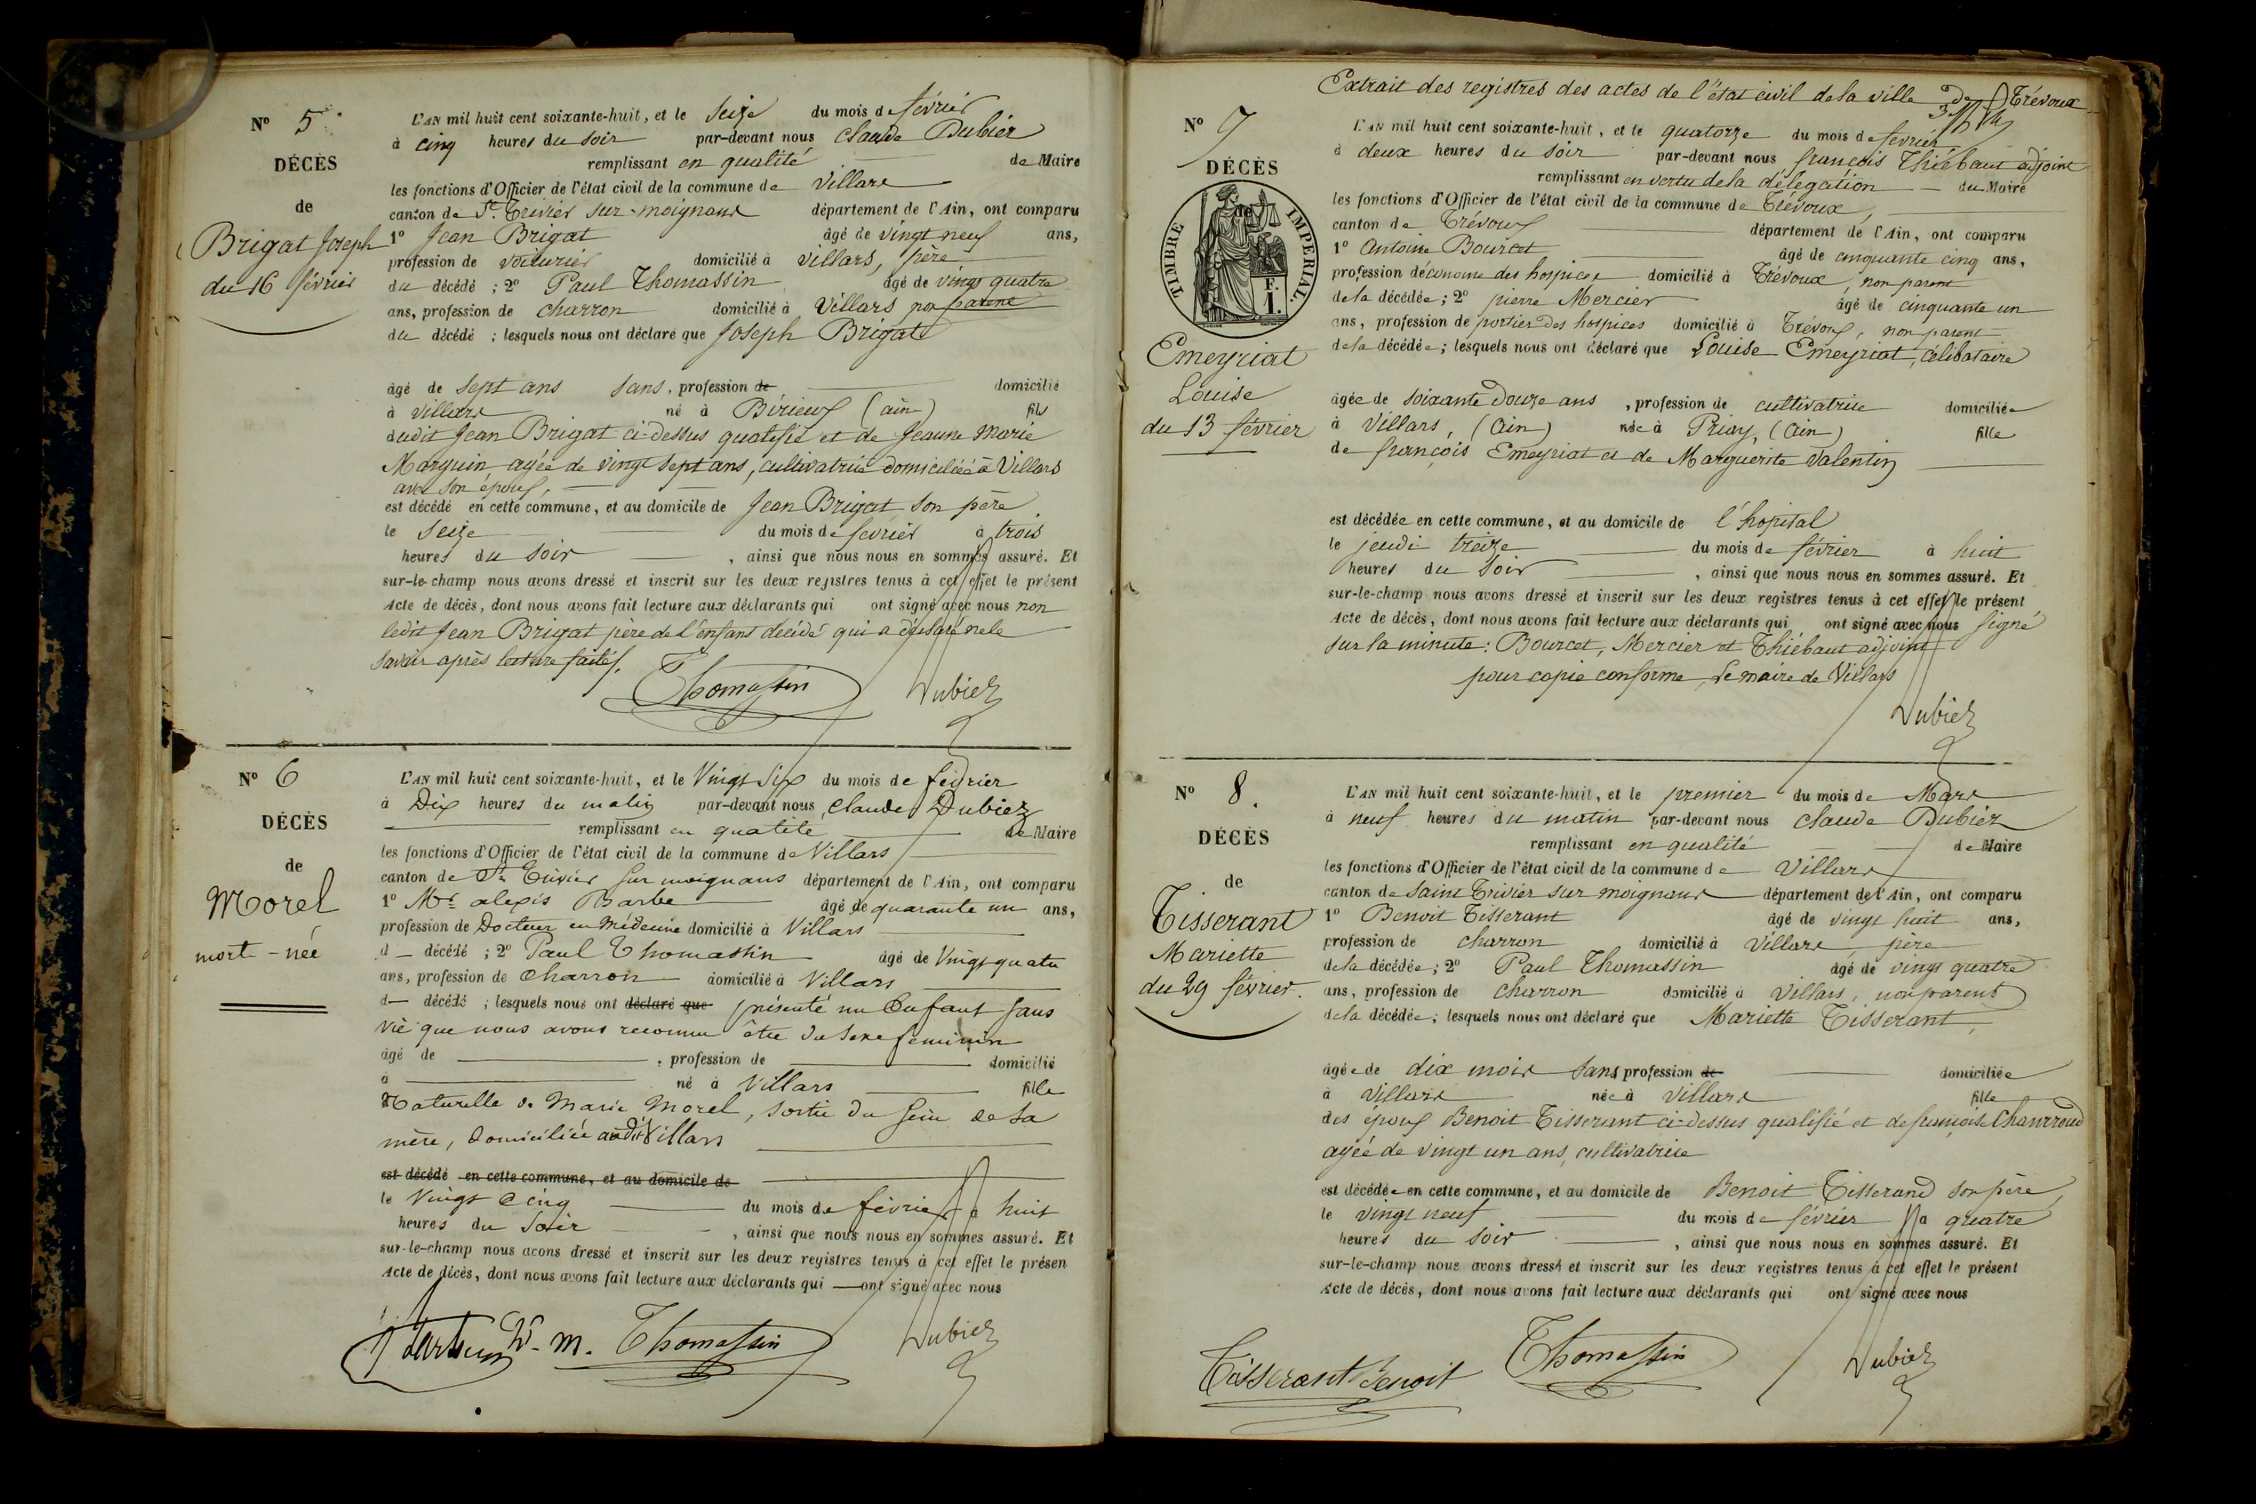 N° 5
DÉCÈS
de
Brigat Joseph
du 16 février
L'AN mil huit cent soixante-huit, et le seize du mois de février
à cinq heures du soir par-devant nous claude Dubiez
remplissant en qualité de Maire
les fonctions d'Officier de l'état civil de la commune de Villars
canton de St. Trivier sur-moignans département de l'Ain, ont comparu
1° Jean Brigat âgé de vingt neuf ans,
profession de voiturier domicilié à villars, père
du décédé ; 2° Paul Thomassin âgé de vingt quatre
ans, profession de charron domicilié à Villars non parent
du décédé ; lesquels nous ont déclaré que Joseph Brigat
âgé de sept ans sans profession de domicilié
à Villars né à Birieux (ain) fils
dudit Jean Brigat ci-dessus qualifié et de Jeanne Marie
Marguin agée de vingt sept ans, cultivatrice domiciliée à Villars
avec son époux,
est décédé en cette commune, et au domicile de Jean Brigat son père
le seize du mois de février à trois
heures du soir , ainsi que nous nous en sommes assuré. Et
sur-le-champ nous avons dressé et inscrit sur les deux registres tenus à cet effet le présent
Acte de décès, dont nous avons fait lecture aux déclarants qui ont signé avec nous non
ledit Jean Brigat père de l'enfant décédé qui a déclaré ne le
savoir après lecture faite.
Thomassin Dubiez
N° 6
DÉCÈS
de
Morel
mort-née
L'AN mil huit cent soixante-huit, et le Vingt six du mois de février
à Dix heures du matin par-devant nous Claude Dubiez
remplissant en qualité de Maire
les fonctions d'Officier de l'état civil de la commune de Villars
canton de St. Trivier sur moignans département de l'Ain, ont comparu
1° Mr. alexis Barbe âgé de quarante un ans,
profession de Docteur en Médecine domicilié à Villars
d décédé ; 2° Paul Thomassin âgé de Vingt quatre
ans, profession de Charron domicilié à Villars
d décédé ; lesquels nous ont déclaré que présenté un Enfant sans
vie que nous avons reconnu être du sexe féminin
âgé de , profession de domicilié
à né à Villars fille
Naturelle de Marie Morel, sortie du sein de sa
mère, domiciliée audit Villars
est décédé en cette commune, et au domicile de
le Vingt cinq du mois de février à huit
heures du soir , ainsi que nous nous en sommes assuré. Et
sur-le-champ nous avons dressé et inscrit sur les deux registres tenus à cet effet le présen
Acte de décès, dont nous avons fait lecture aux déclarants qui ont signé avec nous
D. m. Thomassin Dubiez
Extrait des registres des actes de l'état civil de la ville de Trévoux
N° 7
DÉCÈS
de
TIMBRE IMPERIAL.
F.
1.
Emeyriat
Louise
du 13 février
L'AN mil huit cent soixante-huit, et le quatorze du mois de février
à deux heures du soir par-devant nous françois Thiébaut adjoint
remplissant en vertu de la délégation du Maire
les fonctions d'Officier de l'état civil de la commune de Trévoux,
canton de Trévoux département de l'Ain, ont comparu
1° Antoine Bourcet âgé de cinquante cinq ans,
profession d'économe des hospices domicilié à Trévoux, non parent
de la décédée ; 2° pierre Mercier âgé de cinquante un
ans, profession de portier des hospices domicilié à Trévoux, non parent
de la décédée ; lesquels nous ont déclaré que Louise Emeyriat, célibataire
âgée de soixante douze ans , profession de cultivatrice domiciliée
à Villars, (Ain) née à Priay, (Ain) fille
de françois Emeyriat et de Marguerite Valentin
est décédée en cette commune, et au domicile de l'hopital
le jeudi treize du mois de février à huit
heures du soir , ainsi que nous nous en sommes assuré. Et
sur-le-champ nous avons dressé et inscrit sur les deux registres tenus à cet effet le présent
Acte de décès, dont nous avons fait lecture aux déclarants qui ont signé avec nous signé
sur la minute : Bourcet, Mercier et Thiébaut adjoint
pour copie conforme, Le maire de Villars
Dubiez
N° 8.
DÉCÈS
de
Tisserant
Mariette
du 29 février.
L'AN mil huit cent soixante-huit, et le premier du mois de Mars
à neuf heures du matin par-devant nous claude Dubiez
remplissant en qualité de Maire
les fonctions d'Officier de l'état civil de la commune de Villars
canton de saint Trivier sur moignans département de l'Ain, ont comparu
1° Benoit Tisserant âgé de vingt huit ans,
profession de charron domicilié à Villars, père
de la décédée ; 2° Paul Thomassin âgé de vingt quatre
ans, profession de charron domicilié à Villars, non parent
de la décédée ; lesquels nous ont déclaré que Mariette Tisserant,
âgée de dix mois sans profession de domiciliée
à Villars née à Villars fille
des époux Benoit Tisserant ci-dessus qualifié et de françoise
agée de vingt un ans, cultivatrice
est décédée en cette commune, et au domicile de Benoit Tisserand son père
le vingt neuf du mois de février à quatre
heures du soir , ainsi que nous nous en sommes assuré. Et
sur-le-champ nous avons dressé et inscrit sur les deux registres tenus à cet effet le présent
Acte de décès, dont nous avons fait lecture aux déclarants qui ont signé avec nous
Tisserant Benoit Thomassin Dubiez